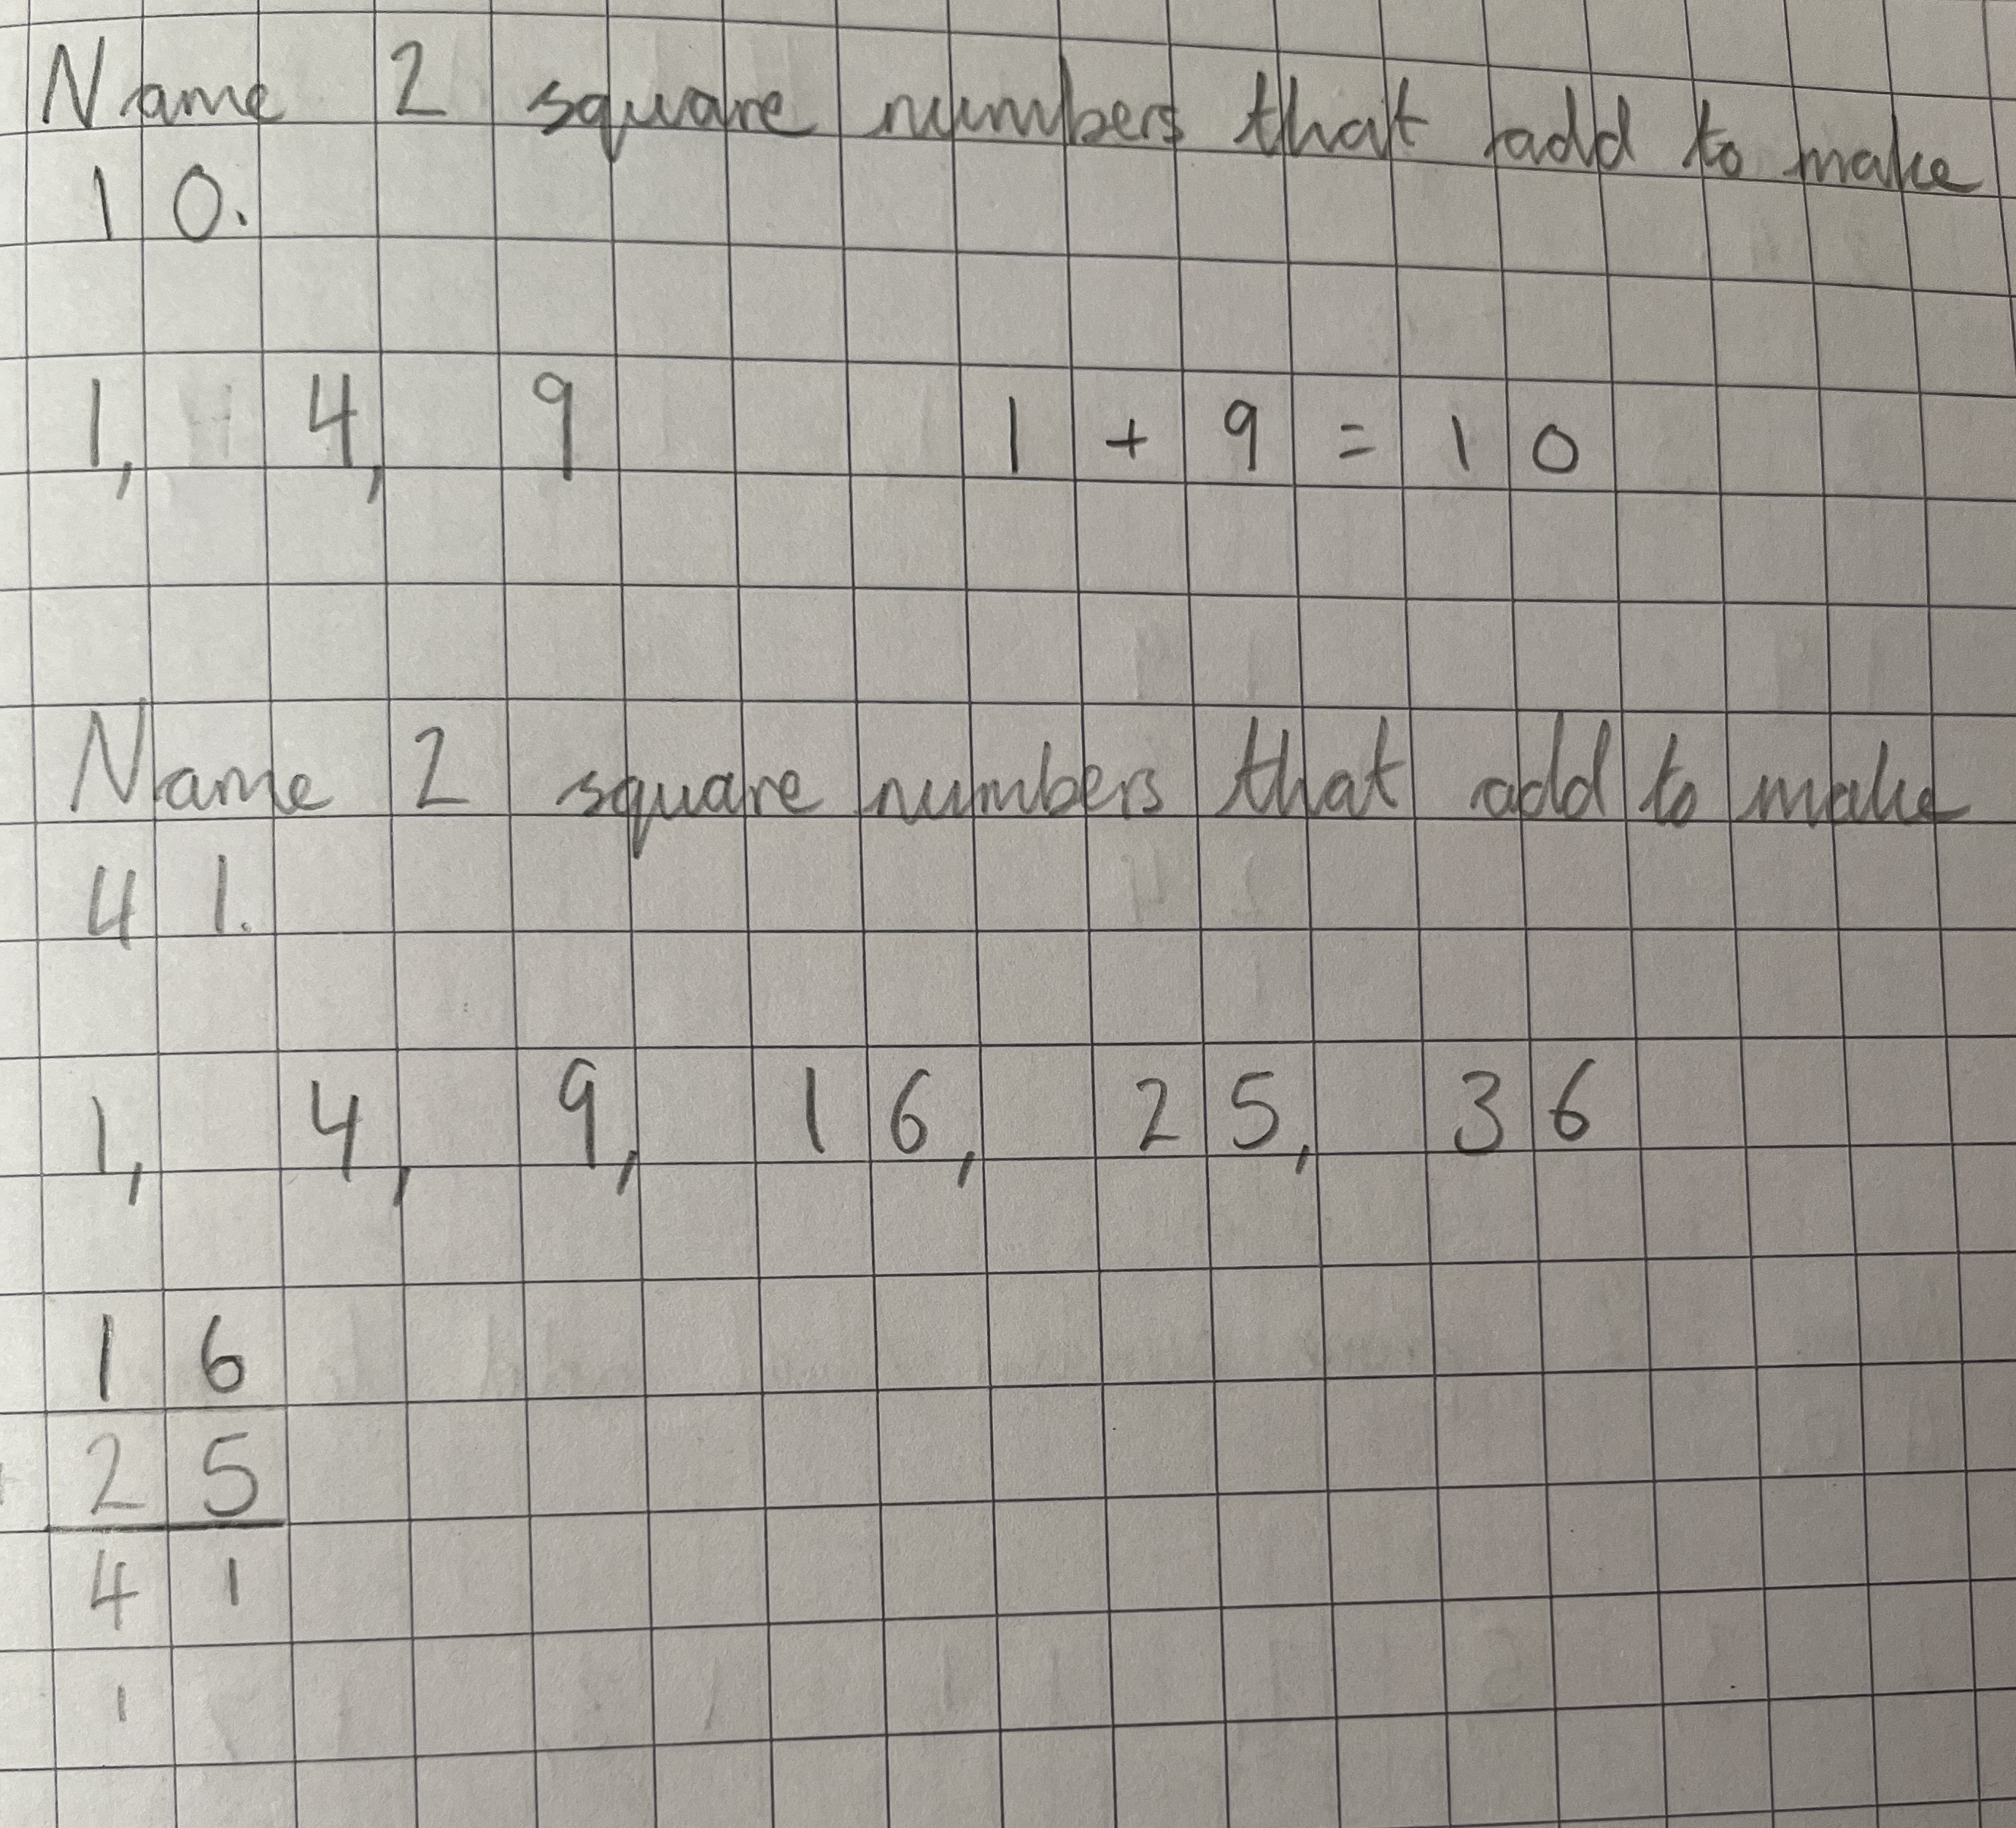 Name 2 square numbers that add to make
10.
1, 4, 9 1 + 9 = 10
Name 2 square numbers that add to make
41.
1, 4, 9, 16, 25, 36
16
25
41
1